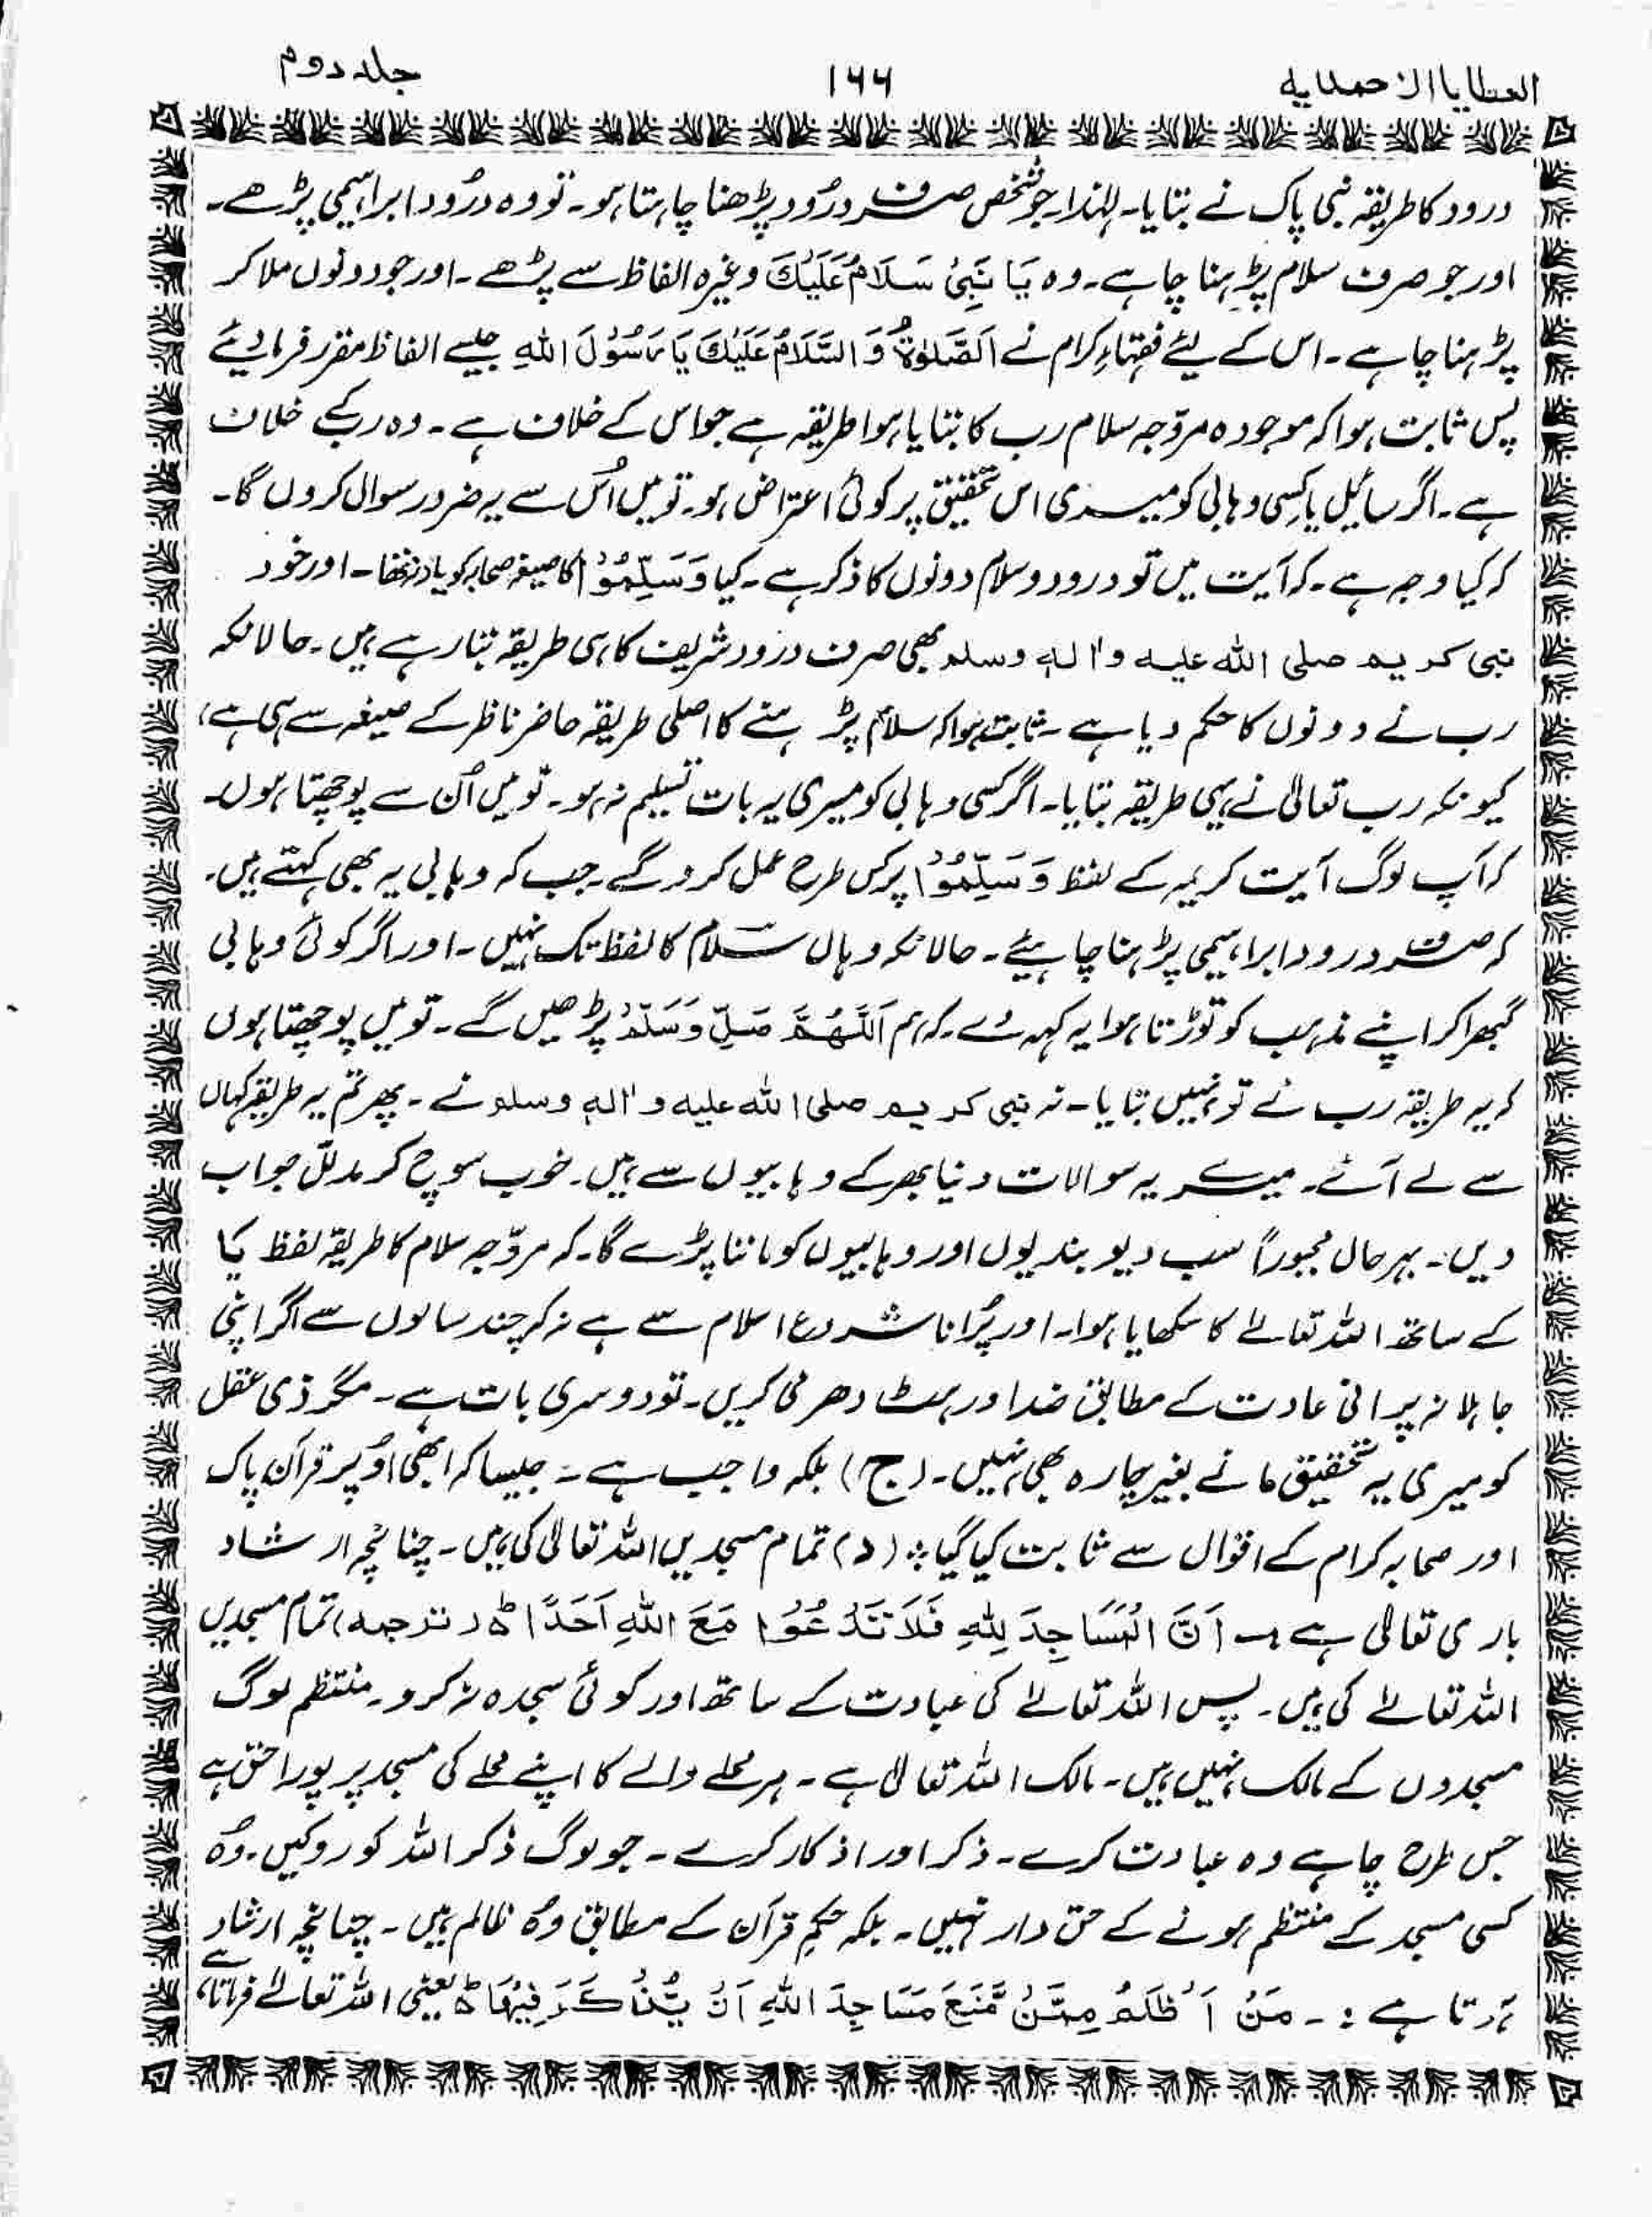 العطایا الاحمدیه ۱۶۶ جلد دوم
درود کا طریقہ نبی پاک نے بتایا۔ لہٰذا۔ جو شخص صرف درُود پڑھنا چاہتا ہو۔ تو وہ درُود ابراہیمی پڑھے۔
اور جو صرف سلام پڑہنا چاہے۔ وہ یَا نَبِیْ سَلَامٌ عَلَیْكَ وغیرہ الفاظ سے پڑھے۔ اور جو دونوں ملا کر
پڑہنا چاہے۔ اس کے لیئے فقہاءِ کرام نے اَلصَّلوٰةُ وَ السَّلَامُ عَلَیْكَ یَا رَسُوْلَ اللهِ جیسے الفاظ مقرر فرما دیئے
پس ثابت ہوا کہ موجودہ مروّجہ سلام رب کا بتایا ہوا طریقہ ہے جو اس کے خلاف ہے۔ وہ رب کے خلاف
ہے۔ اگر سائیل یا کسِی وہابی کو میری اس تحقیق پر کوئی اعتراض ہو۔ تو میں اُس سے یہ ضرور سوال کروں گا۔
کہ کیا وجہ ہے۔ کہ آیت میں تو درود و سلام دونوں کا ذکر ہے۔ کیا وَسَلِّمُوْا کا صیغہ صحابہ کو یاد نہ تھا۔ اور خود
نبی کریم صلی الله علیه واٰله وسلم بھی صرف درود شریف کا ہی طریقہ بتا رہے ہیں۔ حالانکہ
رب نے دونوں کا حکم دیا ہے۔ ثابت ہوا کہ سلام پڑ ہنے کا اصلی طریقہ حاضر ناظر کے صیغہ سے ہی ہے،
کیونکہ رب تعالیٰ نے یہی طریقہ بتایا۔ اگر کسی وہابی کو میری یہ بات تسلیم نہ ہو۔ تو میں اُن سے پوچھتا ہوں۔
کہ آپ لوگ آیت کریمہ کے لفظ وَ سَلِّمُوْا پر کس طرح عمل کرو گے۔ جب کہ وہابی یہ بھی کہتے ہیں۔
کہ صرف درود ابراہیمی پڑہنا چاہیئے۔ حالانکہ وہاں سَلام کا لفظ تک نہیں۔ اور اگر کوئی وہابی
گھبرا کر اپنے مذہب کو توڑتا ہوا یہ کہہ دے۔ کہ ہم اَللّٰهُمَّ صَلِّ وَسَلِّمْ پڑھیں گے۔ تو میں پوچھتا ہوں
کہ یہ طریقہ رب نے تو نہیں بتایا۔ نہ نبی کریم صلی الله علیه واٰله وسلم نے۔ پھر تم یہ طریقہ کہاں
سے لے آئے۔ میرے یہ سوالات دنیا بھر کے وہابیوں سے ہیں۔ خوب سوچ کر مدلّل جواب
دیں۔ بہر حال مجبوراً سب دیوبندیوں اور وہابیوں کو ماننا پڑے گا۔ کہ مروّجہ سلام کا طریقہ لفظ یَا
کے ساتھ اللہ تعالےٰ کا سکھایا ہوا۔ اور پُرانا شروع اسلام سے ہے نہ کہ چند سالوں سے اگر اپنی
جاہلانہ پرانی عادت کے مطابق ضد اور ہٹ دھرمی کریں۔ تو دوسری بات ہے۔ مگر ذی عقل
کو میری یہ تحقیق مانے بغیر چارہ بھی نہیں۔ (ج) بلکہ واجب ہے۔ جیسا کہ ابھی اُوپر قرآن پاک
اور صحابہ کرام کے اقوال سے ثابت کیا گیا ؞ (د) تمام مسجدیں اللہ تعالیٰ کی ہیں۔ چنانچہ ارشاد
باری تعالیٰ ہے :۔ اَنَّ الْمَسَاجِدَ لِلّٰهِ فَلَا تَدْعُوْا مَعَ اللهِ اَحَدًا ط (ترجمہ) تمام مسجدیں
اللہ تعالےٰ کی ہیں۔ پس اللہ تعالےٰ کی عبادت کے ساتھ اور کوئی سجدہ نہ کرو۔ منتظم لوگ
مسجدوں کے مالک نہیں ہیں۔ مالک اللہ تعالیٰ ہے۔ ہر محلے والے کا اپنے محلے کی مسجد پر پورا حق ہے
جس طرح چاہے وہ عبادت کرے۔ ذکر اور اذکار کرے۔ جو لوگ ذکر اللہ کو روکیں۔ وُہ
کسی مسجد کے منتظم ہونے کے حق دار نہیں۔ بلکہ حکمِ قرآن کے مطابق وُہ ظالم ہیں۔ چنانچہ ارشاد
ہوتا ہے :۔ مَنْ اَظْلَمُ مِمَّنْ مَّنَعَ مَسَاجِدَ اللهِ اَنْ یُّذْكَرَ فِیْهَا ط یعنی اللہ تعالےٰ فرماتا ہے،